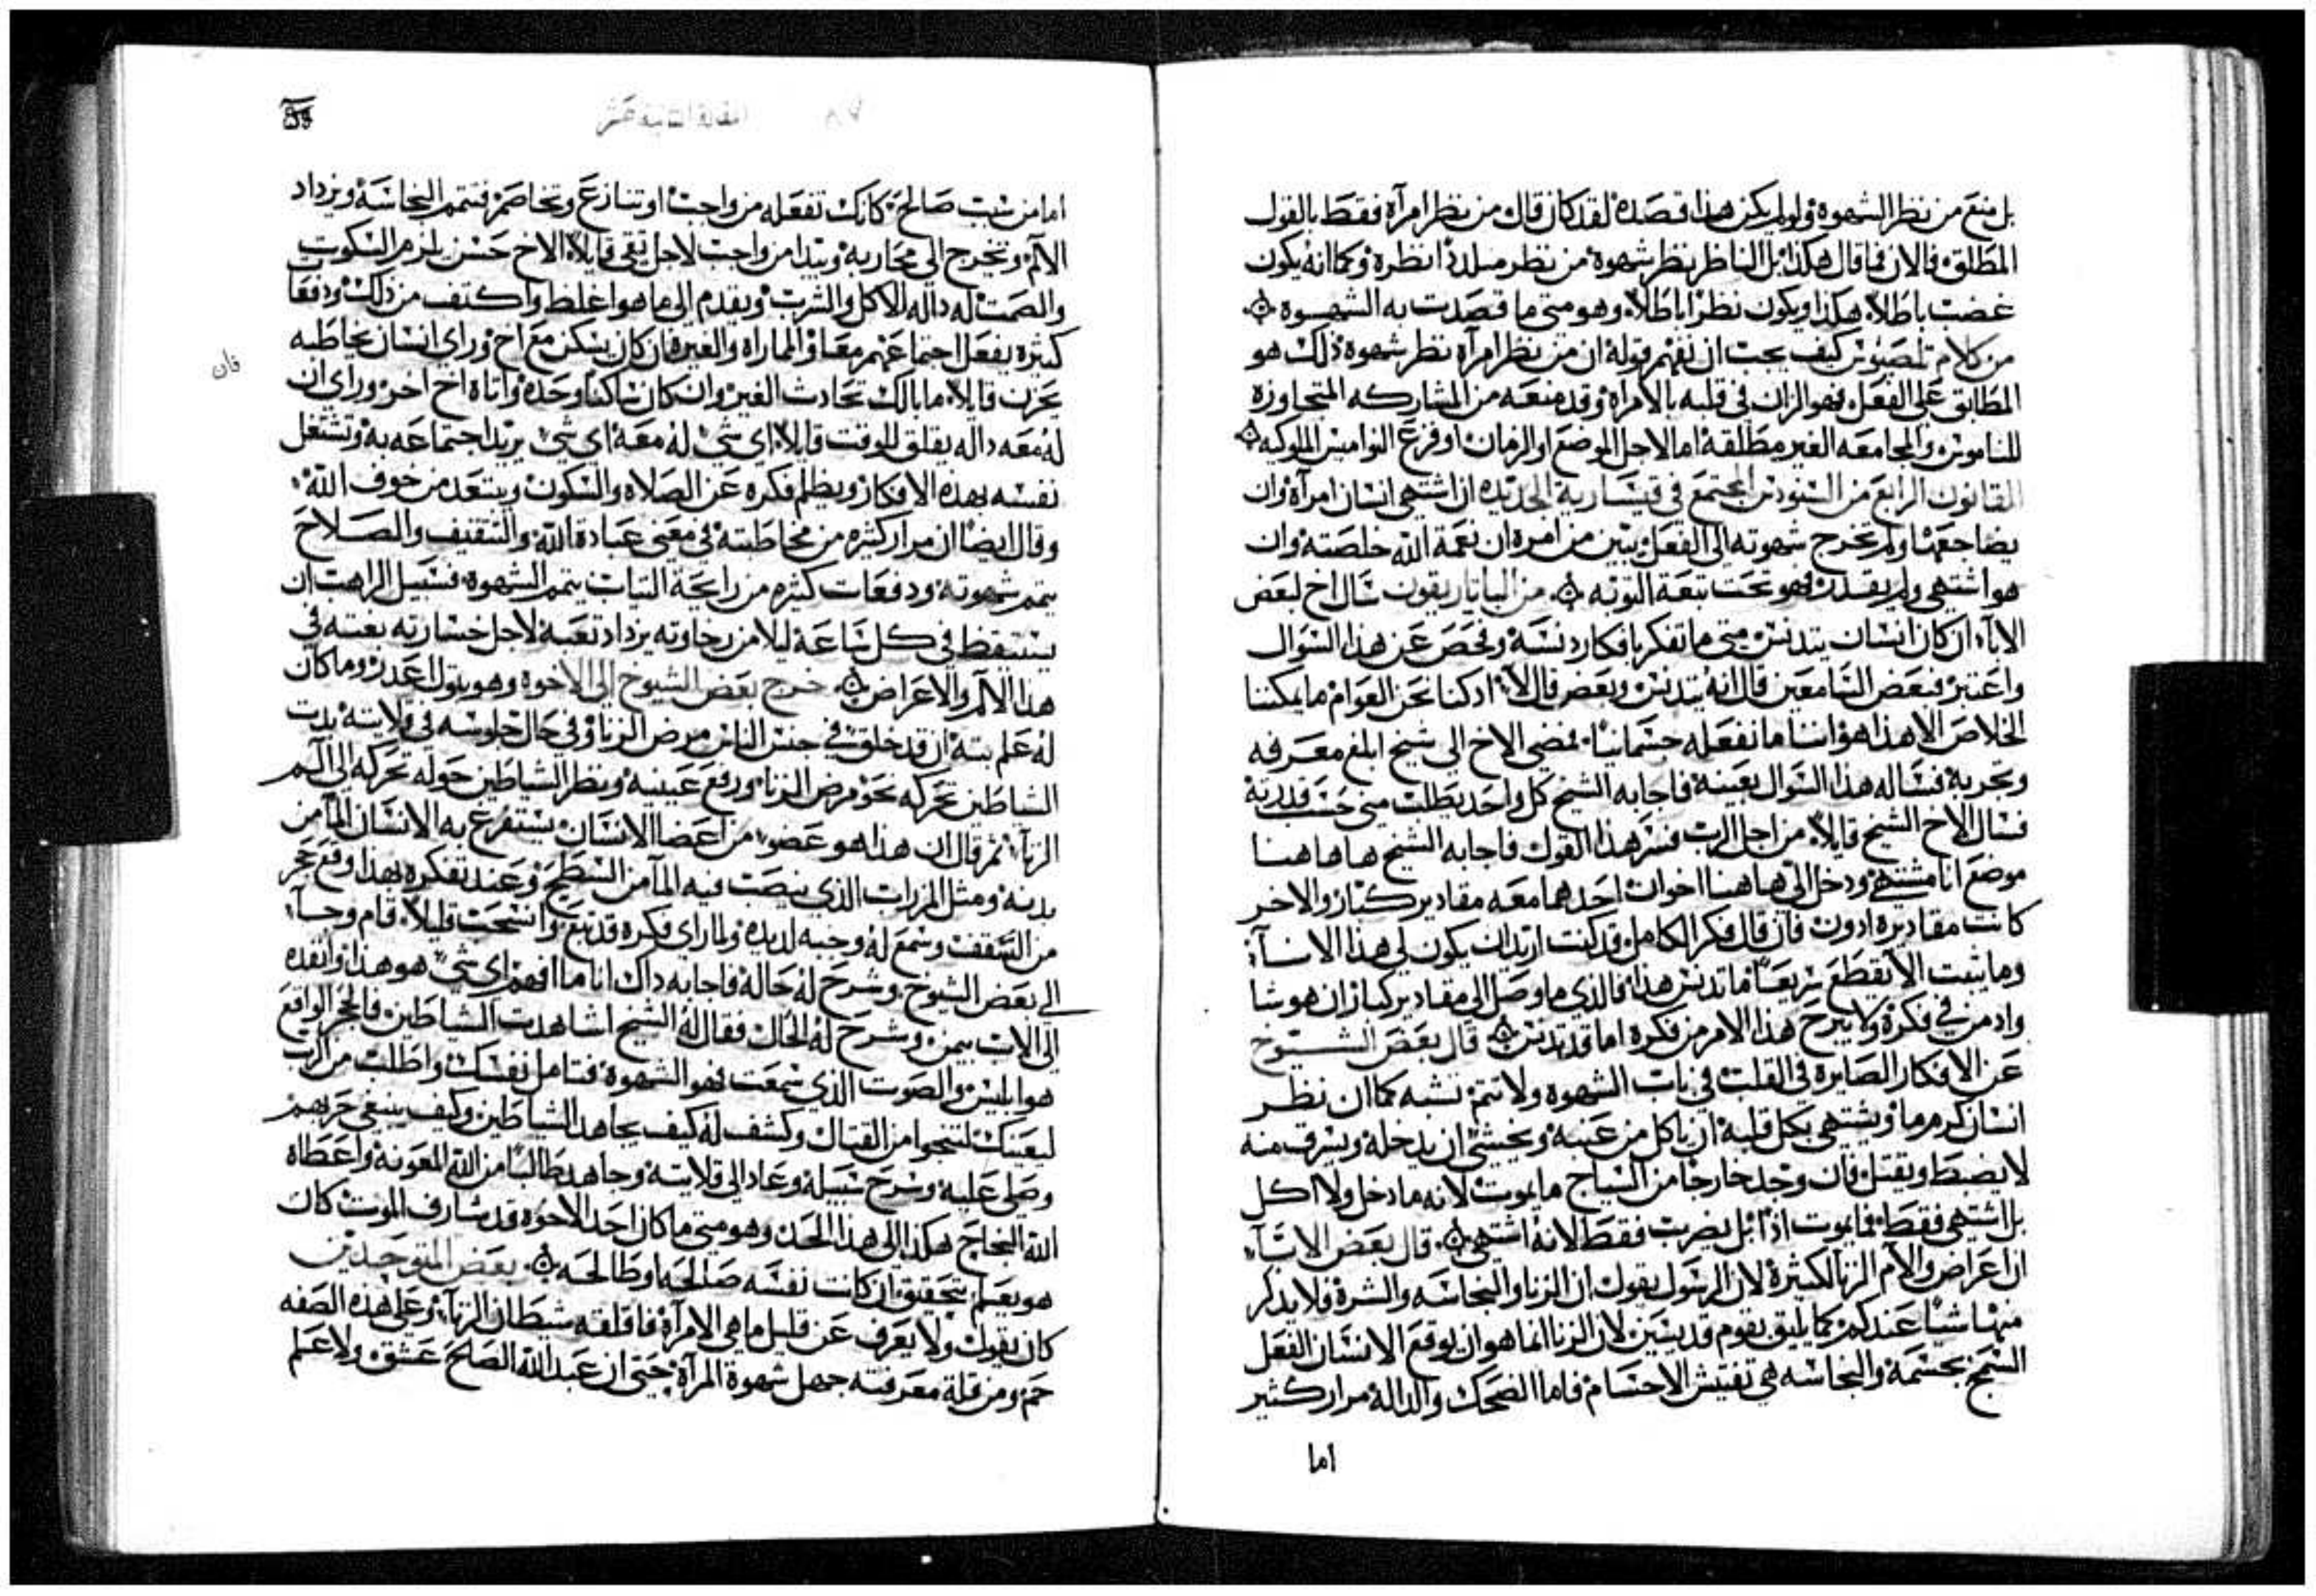 بل منع من نظر الشهوة ولو لم يكن هذا قصده لقد كان قال من نظر امرأة فقط بالقول
المطلق فالان فما قال هكذا بل الناظر نظر شهوة من نظر متلذذا نظره وكما انه يكون
غضب باطلا هكذا ويكون نظرا باطلا وهو متى ما قصدت به الشهوة
من كلام كيف يجب ان نفهم قوله ان من نظر امرأة نظر شهوة ذلك هو
المطابق على الفعل فهو الزان في قلبه بالامراه وقد منعه من المشاركه المتجاوزة
للناموس والمجامعه الغير مطلقة اما لاجل الموضع او الزمان او فزع النواميس الملوكيه
القانون الرابع من السنودس المجتمع في قيسارية الجديده ان اشتهى انسان امرأة وان
يضاجعها ولم تخرج شهوته الى الفعل يتبين من امره ان نعمة الله خلصته وان
هو اشتهى ولم يقدر فهو تحت تبعة التوبه من الباتاريقون سال اخ لبعض
الاباء ان كان انسان يتدنس متى ما تفكر بافكار دنسة وفحص عن هذا السوال
واعتبر فبعض السامعين قال انه يتدنس وبعض قال لا اد كنا نحن العوام ما يمكننا
الخلاص الا هذا هو اننا ما نفعله جسمانيا فمضى الاخ الى شيخ ابلغ معرفه
وتجربة فساله هذا السوال بعينة فاجابه الشيخ كل واحد يطلب منه حسب قدرته
فسال الاخ الشيخ قايلا من اجل الرب فسر هذا القول فاجابه الشيخ ها هاهنا
موضع انا مشتهى ودخل الى هاهنا اخوان احدهما معه مقادير كبار والاخر
كانت مقاديره ادون فان قال فكر الكامل قد كنت اريد ان يكون لي هذا الانآء
وما يثبت الا يقطع سريعا فما تدنس هذا فالذي ما وصل الى مقادير كبار ان هو شا
وادمن في فكرة ولا يبرح هذا الامر من فكره اما قد تدنس قال بعض الشيوخ
عن الافكار الصايرة في القلب في باب الشهوة ولا تتم نشبه كما ان نظر
انسان كرم ما ويشتهي بكل قلبه ان ياكل من عنبه ويخشى ان يدخله ويسرق منه
لا يضبط ويقتل فان وجد خارجا من السياج ما يموت لانه ما دخل ولا اكل
بل اشتهى فقط فما يموت اذا بل يضرب فقط لانه اشتهى قال بعض الابآء
ان اعراض والام الزنا لكثيرة لان الرسول يقول ان الزنا والنجاسه والشرة فلا يذكر
منها شيا عندكم كما يليق بقوم قديسين لان الزنا انما هو ان يوقع الانسان الفعل
السمج بجسمه والنجاسه هي تفتيش الاجسام فاما الضحك والدالة مرار كثير
اما
المقالة الثانية عشر
اما من شبب صالح كانك تفعله من واجب او تنازع وتخاصم فتتمم النجاسة ويزداد
الالم وتخرج الى محاربة وتبدا من واجب لاجل تقى قايلا الاخ حسن يلزم السكوت
والصمت له داله الاكل والشرب ويقدم الى ما هو اغلظ واكتف من ذلك ودفعا
كثيره يفعل اجتماعهم معا والمماراه والغيره فان كان يسكن مع اخ وراى انسان يخاطبه
يحزن قايلا ما بالك تحادث الغير وان كان ساكنا وحده واتاه اخ اخر وراى ان
له معه داله يقلق للوقت قايلا اي شي له معه اي شي يريد اجتماعه به وتشتغل
نفسه بهذه الافكار ويظلم فكره عن الصلاه والسكون ويبتعد من خوف الله
وقال ايضا ان مرار كثيره من مخاطبته في معنى عبادة الله والتثقيف والصلاح
يتمم شهوته ودفعات كثيره من رايحة الثياب يتمم الشهوة فسبيل الراهب ان
يستيقظ في كل ساعة ليلا من رخاوته يزداد تعبه لاجل خسارته نفسه في
هذا الالم والاعراض خرج بعض الشيوخ الى الاخوة وهو بتول اعدر وما كان
له علم بتة ان قد خلق في جنس الناس مرض الزنا وفي حال جلوسه في قلايته بدت
الشاطين تحركه نحو مرض الزنا ورفع عينيه ونظر الشياطين حوله تحركه الى الم
الزنآ ثم قال ان هذا هو عضو من اعضا الانسان يستفرغ به الانسان المآ من
بدنه ومثل المزراب الذي ينصب فيه المآ من السطيح وعند تفكره بهذا وقع حجر
من السقف وسمع له وجبه لديده ولما راى فكره قد نبع وانسحب قليلا قام وجآء
الى بعض الشيوخ وشرح له حاله فاجابه داك انا ما افهم اي شي هو هذا وانفده
الى الاب بيمن وشرح له الحال فقال له الشيخ اشاهدت الشياطين فالحجر الواقع
هو ابليس والصوت الذي سمعت فهو الشهوة فتامل نفسك واطلب من الرب
ليعينك لتنجوا من القتال وكشف له كيف يجاهد الشياطين وكيف ينبغي حربهم
وصلى عليه وشرح سبيله وعاد الى قلايته وجاهد طالبا من الله المعونه واعطاه
الله النجاح هكذا الى هذا الحد وهو متى ما كان احد الاخوه قد شارف الموت كان
هو يعلم بتحقيق ان كانت نفسه صالحه او طالحه بعض المتوحدين
كان يقول ولا يعرف عن قليل ما هي الامرأة فاقلقه شيطان الزنآ وعلى هذه الصفه
حم ومن قلة معرفته جهل شهوة المرأة حتى ان عبد الله الصلح عشق ولا علم
فان